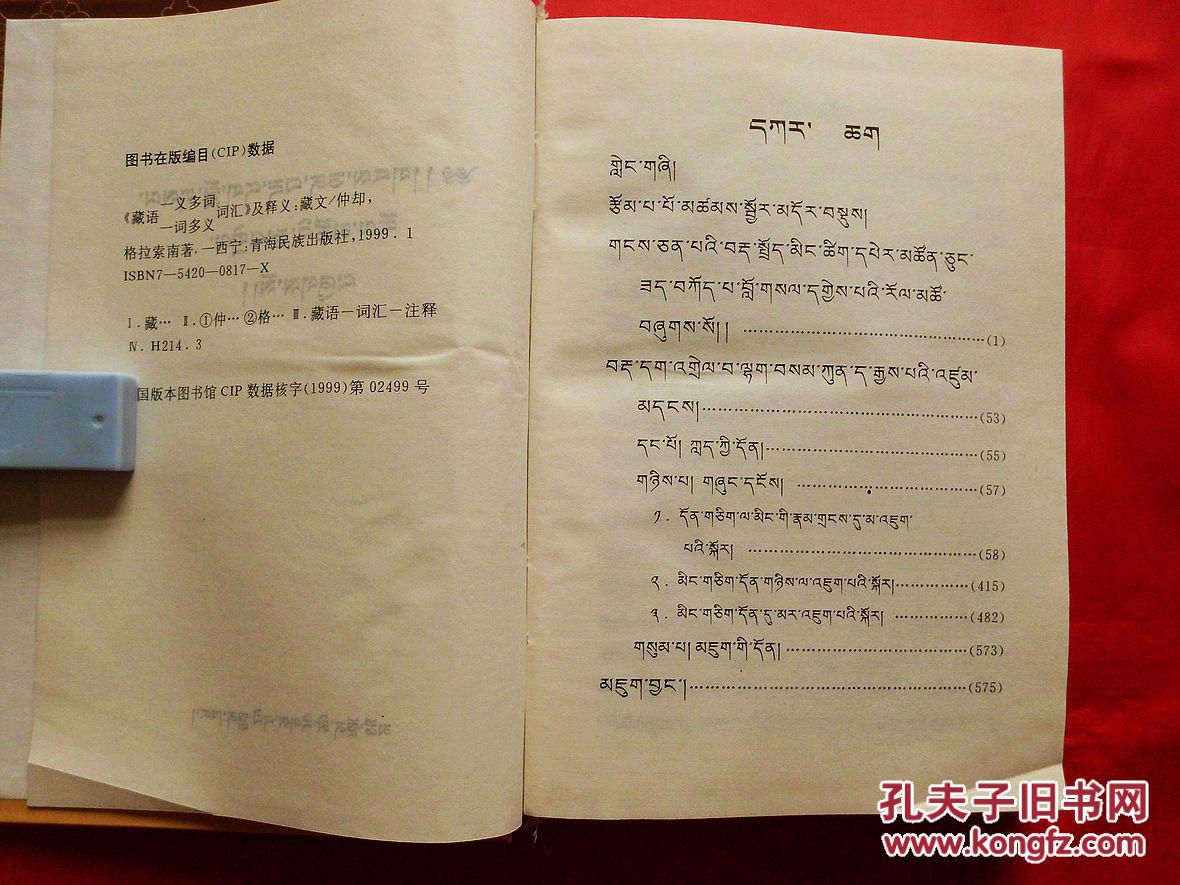 图书在版编目(CIP)数据
《藏语一义多词一词多义词汇》及释义:藏文/仲却,
格拉索南著.—西宁:青海民族出版社,1999.1
ISBN7—5420—0817—X
Ⅰ.藏… Ⅱ.①仲…②格… Ⅲ.藏语—词汇—注释
Ⅳ.H214.3
国版本图书馆CIP数据核字(1999)第02499号
དཀར་ ཆག
གླེང་གཞི།
རྩོམ་པ་པོ་མཚམས་སྦྱོར་མདོར་བསྡུས།
གངས་ཅན་པའི་བརྡ་སྤྲོད་མིང་ཚིག་དཔེར་མཚོན་ཅུང་
ཟད་བཀོད་པ་བློ་གསལ་དགྱེས་པའི་རོལ་མཚོ་
བཞུགས་སོ།། ……(1)
བརྡ་དག་འགྲེལ་བ་ལྷག་བསམ་ཀུན་ད་རྒྱས་པའི་འཛུམ་
མདངས།……(53)
དང་པོ། ཀླད་ཀྱི་དོན།……(55)
གཉིས་པ། གཞུང་དངོས། ……(57)
༡. དོན་གཅིག་ལ་མིང་གི་རྣམ་གྲངས་དུ་མ་འཇུག་
པའི་སྐོར། ……(58)
༢. མིང་གཅིག་དོན་གཉིས་ལ་འཇུག་པའི་སྐོར།……(415)
༣. མིང་གཅིག་དོན་དུ་མར་འཇུག་པའི་སྐོར། ……(482)
གསུམ་པ། མཇུག་གི་དོན།……(573)
མཇུག་བྱང་།……(575)
孔夫子旧书网
www.kongfz.com